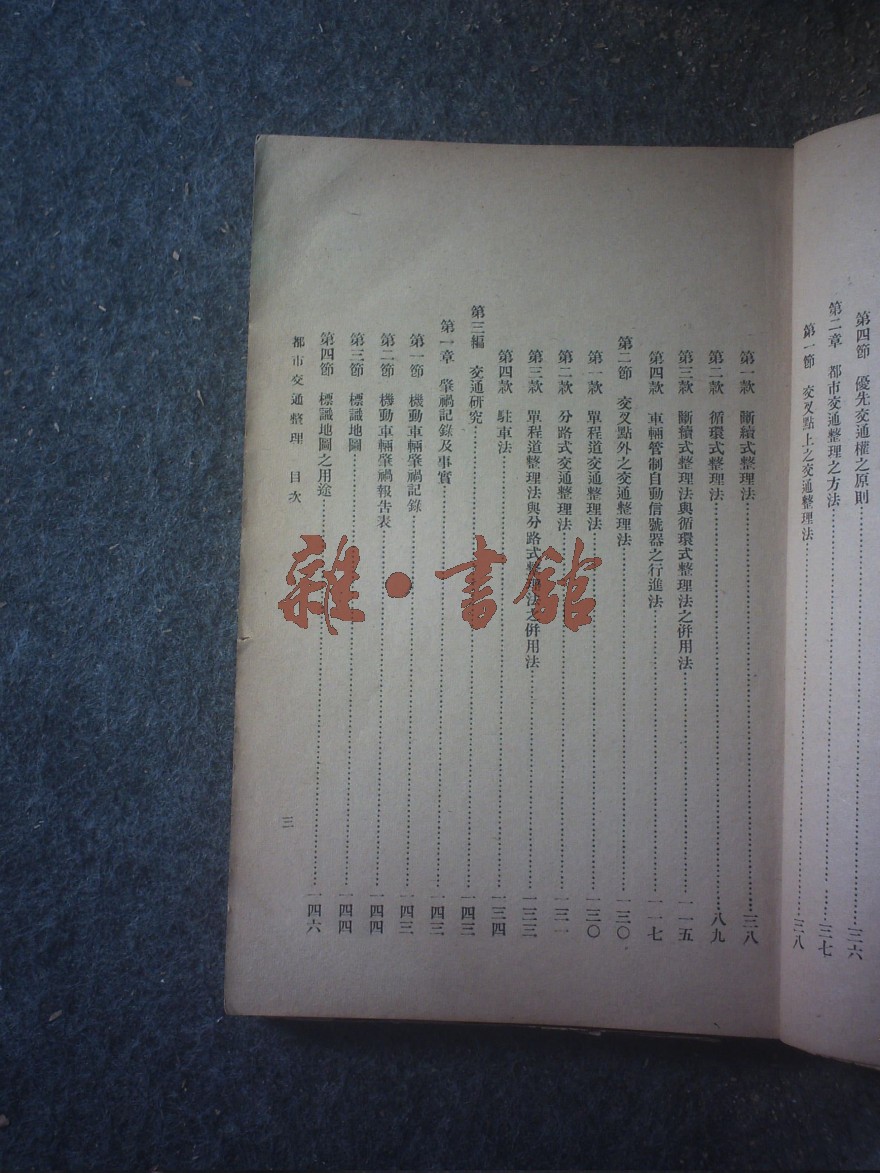 第四節 優先交通權之原則……三六
第二章 都市交通整理之方法……三七
第一節 交叉點上之交通整理法……三八
第一款 斷續式整理法……三八
第二款 循環式整理法……八九
第三款 斷續式整理法與循環式整理法之併用法……一一五
第四款 車輛管制自動信號器之行進法……一一七
第二節 交叉點外之交通整理法……一三〇
第一款 單程道交通整理法……一三〇
第二款 分路式交通整理法……一三一
第三款 單程道整理法與分路式整理法之併用法……一三三
第四款 駐車法……一三四
第三編 交通研究……一四三
第一章 肇禍記錄及事實……一四三
第一節 機動車輛肇禍記錄……一四三
第二節 機動車輛肇禍報告表……一四四
第三節 標識地圖……一四四
第四節 標識地圖之用途……一四六
都市交通整理 目次
三
雜·書館